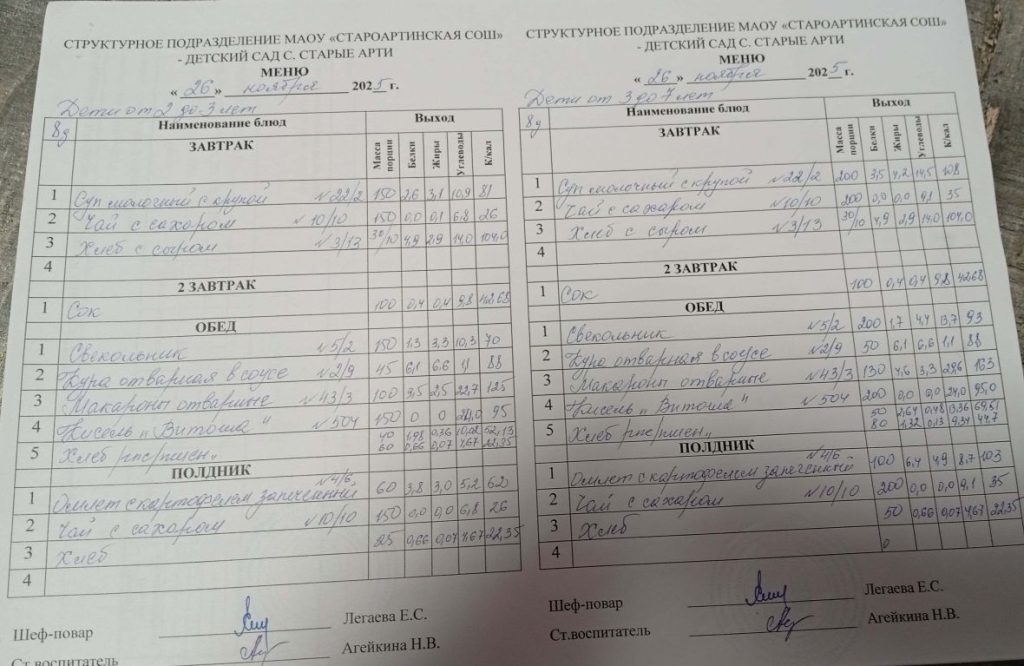 СТРУКТУРНОЕ ПОДРАЗДЕЛЕНИЕ МАОУ «СТАРОАРТИНСКАЯ СОШ»
- ДЕТСКИЙ САД С. СТАРЫЕ АРТИ
МЕНЮ
« 26 » ноября 2025 г.
Дети от 2 до 3 лет
8д Наименование блюд Выход
ЗАВТРАК Масса порции Белки Жиры Углеводы К/кал
1 Суп молочный с крупой №22/2 150 2,6 3,1 10,9 81
2 Чай с сахаром №10/10 150 0,0 0,1 6,8 26
3 Хлеб с сыром №3/13 30/10 4,9 2,9 14,0 104,0
4
2 ЗАВТРАК
1 Сок 100 0,4 0,4 9,8 42,68
ОБЕД
1 Свекольник №5/2 150 1,3 3,3 10,3 70
2 Кура отварная в соусе №2/9 45 6,1 6,6 1,1 88
3 Макароны отварные №43/3 100 3,5 2,5 22,7 125
4 Кисель „Витоша" №504 150 0 0 24,0 95
5 Хлеб рж/пшен„ 40 1,98 0,36 10,02 52,13
60 0,66 0,07 4,67 22,35
ПОЛДНИК
1 Омлет с картофелем запеченный №4/6 60 3,8 3,0 5,2 62
2 Чай с сахаром №10/10 150 0,0 0,0 6,8 26
3 Хлеб 25 0,66 0,07 4,67 22,35
4
Шеф-повар Легаева Е.С.
Ст.воспитатель Агейкина Н.В.
СТРУКТУРНОЕ ПОДРАЗДЕЛЕНИЕ МАОУ «СТАРОАРТИНСКАЯ СОШ»
- ДЕТСКИЙ САД С. СТАРЫЕ АРТИ
МЕНЮ
« 26 » ноября 2025 г.
Дети от 3 до 7 лет
8д Наименование блюд Выход
ЗАВТРАК Масса порции Белки Жиры Углеводы К/кал
1 Суп молочный с крупой №22/2 200 3,5 4,2 14,5 108
2 Чай с сахаром №10/10 200 0,0 0,0 9,1 35
3 Хлеб с сыром №3/13 30/10 4,9 2,9 14,0 104,0
4
2 ЗАВТРАК
1 Сок 100 0,4 0,4 9,8 42,68
ОБЕД
1 Свекольник №5/2 200 1,7 4,4 13,7 93
2 Кура отварная в соусе №2/9 50 6,1 6,6 1,1 88
3 Макароны отварные №43/3 130 4,6 3,3 29,6 163
4 Кисель „Витоша" №504 200 0,0 0,0 24,0 95,0
5 Хлеб рж/пшен„ 50 2,64 0,48 13,36 69,51
80 1,32 0,13 9,34 44,7
ПОЛДНИК
1 Омлет с картофелем запеченный №4/6 100 6,4 4,9 8,7 103
2 Чай с сахаром №10/10 200 0,0 0,0 9,1 35
3 Хлеб 50 0,66 0,07 4,67 22,35
4
Шеф-повар Легаева Е.С.
Ст.воспитатель Агейкина Н.В.